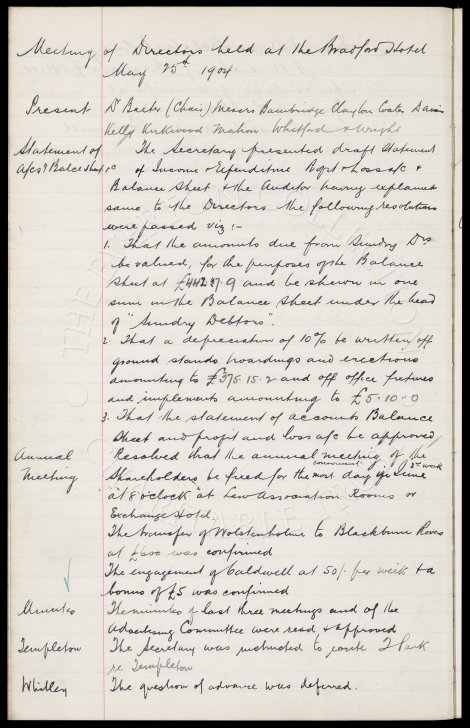 Meeting of Directors held at the Bradford Hotel
May 25th 1904
Present Dr Baxter (Chair) Messrs Bainbridge Clayton Coates Davies
Kelly Kirkwood Mahon Whitford & Wright
Statement of The Secretary presented draft Statement
A/cs & Balce Sheet of Income & Expenditure Profit & Loss a/c &
Balance Sheet & the Auditor having explained
same to the Directors the following resolutions
were passed viz :-
1. That the amounts due from Sundry Drs
be valued, for the purposes of the Balance
Sheet at and be shewn in one
sum in the Balance Sheet under the head
of "Sundry Debtors".
2 That a depreciation of 10% be written off
ground stands hoardings and erections
amounting to £375.15.2 and off office fixtures
and implements amounting to £5.10.9
3. That the statement of accounts Balance
Sheet and profit and loss a/c be approved
Annual Resolved that the annual meeting of the
Meeting Shareholders be fixed for the most convenient day in 2nd week of June
at "8 o'clock" at Law Association Rooms or
Exchange Hotel
The transfer of Wolstenholme to Blackburn Rovers
at £600 was confirmed
The engagement of Caldwell at 50/- per week & a
bonus of £5 was confirmed
Minutes The minutes of last three meetings and of the
Advertising Committee were read & approved
Templeton The Secretary was instructed to write Park
re Templeton
Whitley The question of advance was deferred.